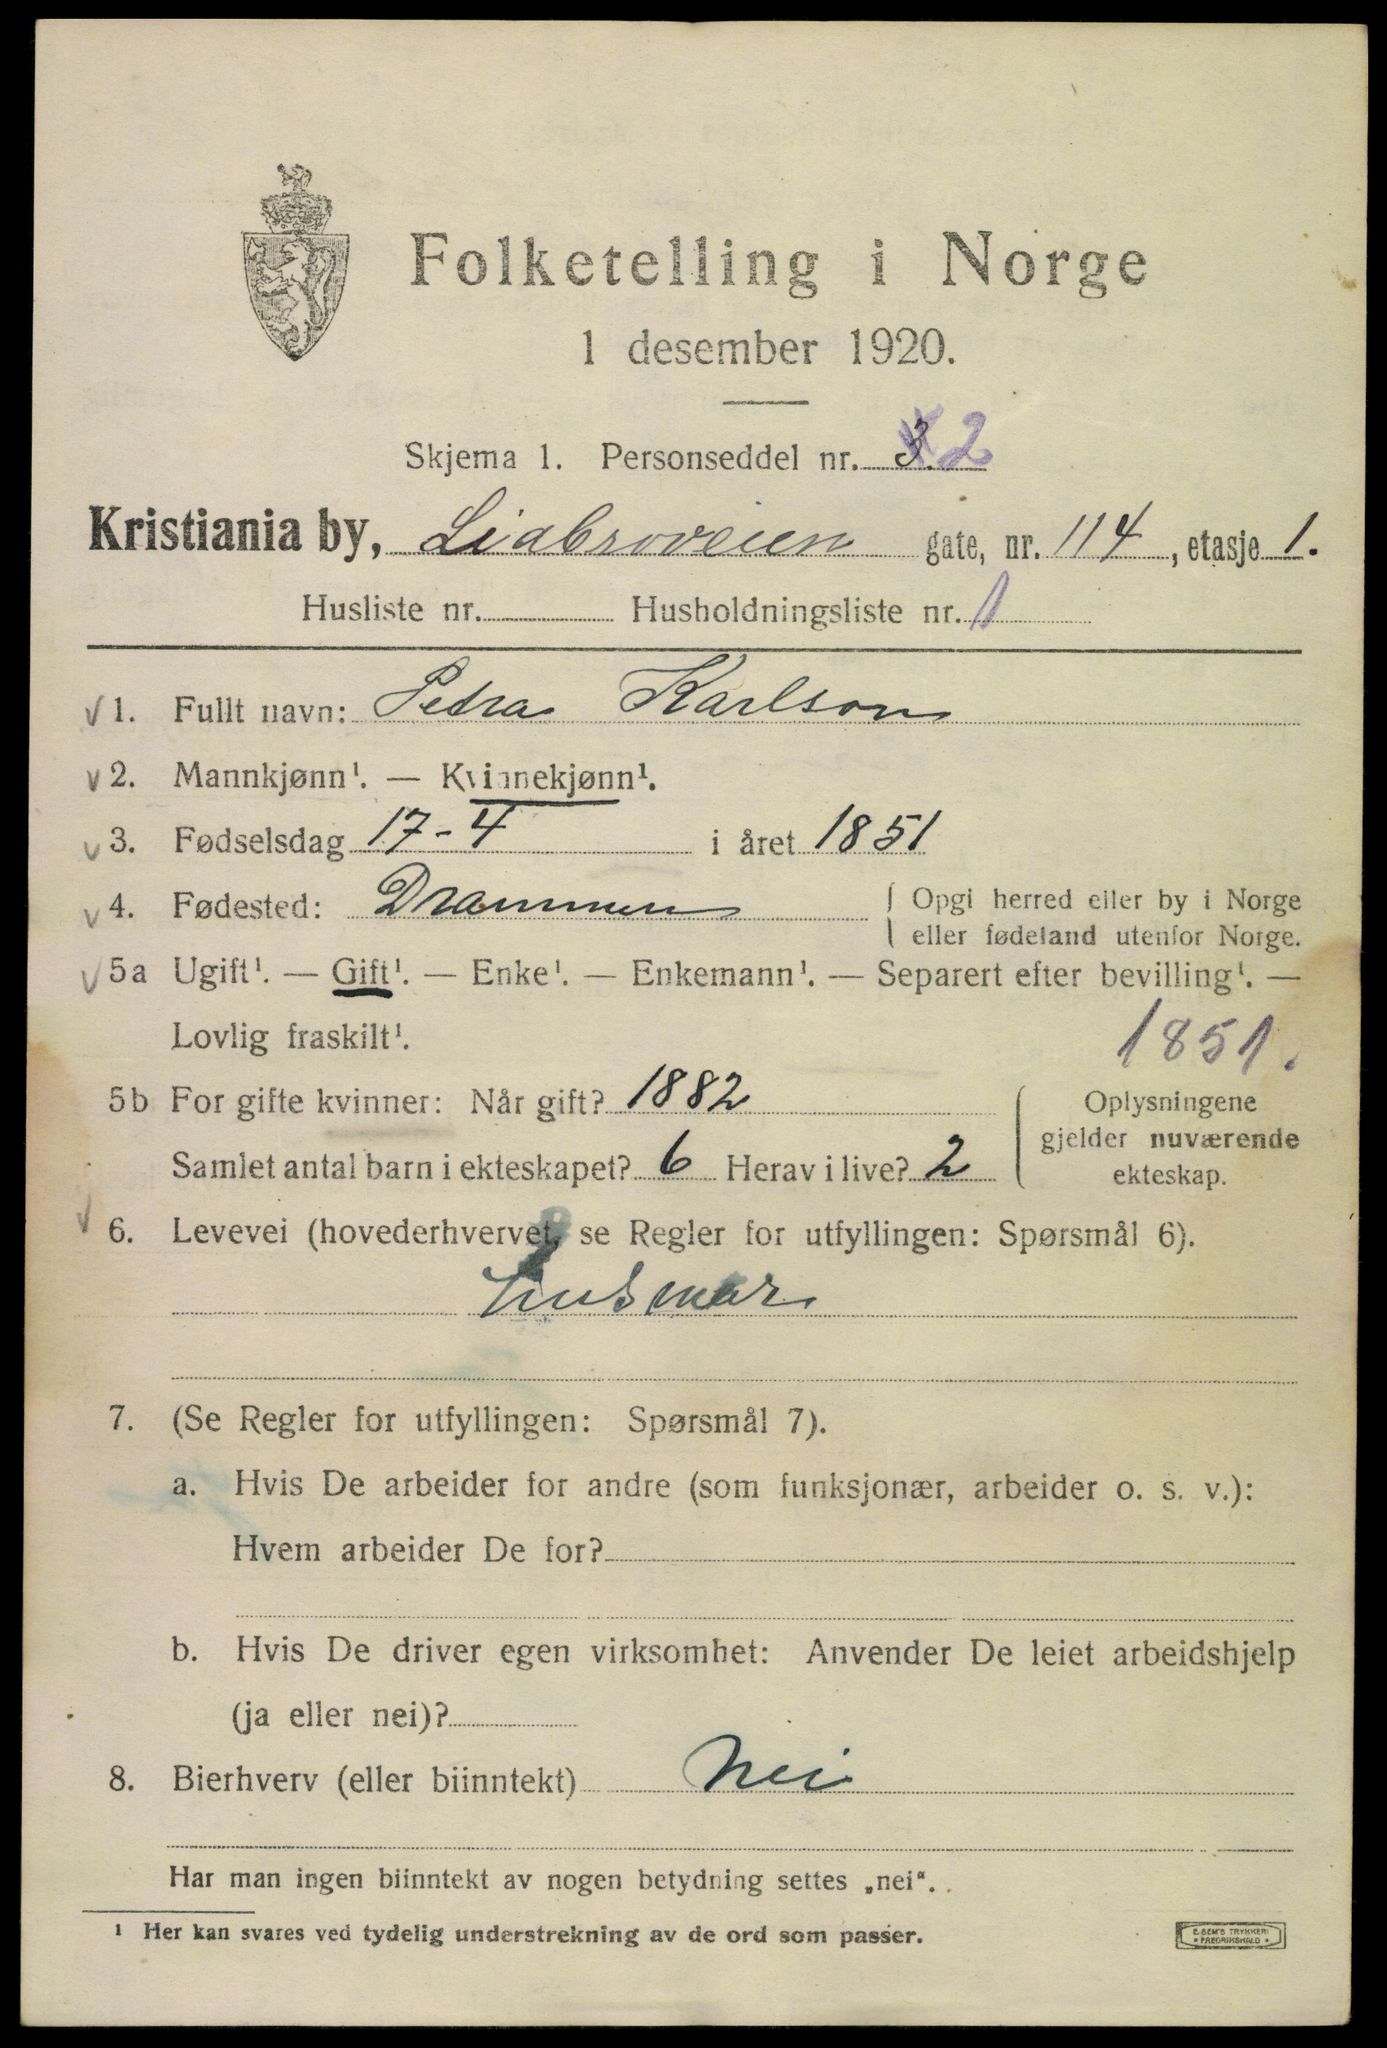 Folketelling i Norge
1 desember 1920.
Skjema 1. Personseddel nr. 3. 2
Kristiania by, Liabroveien gate, nr. 114, etasje 1.
Husliste nr. Husholdningsliste nr. 1
1. Fullt navn: Petra Karlson
2. Mannkjønn¹. — Kvinnekjønn¹.
3. Fødselsdag 17-4 i året 1851
4. Fødested: Drammen Opgi herred eller by i Norge
eller fødeland utenfor Norge.
5a Ugift¹. — Gift¹. — Enke¹. — Enkemann¹. — Separert efter bevilling¹. —
Lovlig fraskilt¹.
1851.
5b For gifte kvinner: Når gift? 1882
Samlet antal barn i ekteskapet? 6 Herav i live? 2
Oplysningene
gjelder nuværende
ekteskap.
6. Levevei (hovederhvervet, se Regler for utfyllingen: Spørsmål 6).
Husmor
7. (Se Regler for utfyllingen: Spørsmål 7).
a. Hvis De arbeider for andre (som funksjonær, arbeider o. s. v.):
Hvem arbeider De for?
b. Hvis De driver egen virksomhet: Anvender De leiet arbeidshjelp
(ja eller nei)?
8. Bierhverv (eller biinntekt) Nei
Har man ingen biinntekt av nogen betydning settes „nei“.
¹ Her kan svares ved tydelig understrekning av de ord som passer.
E. SEM'S TRYKKERI
FREDRIKSHALD